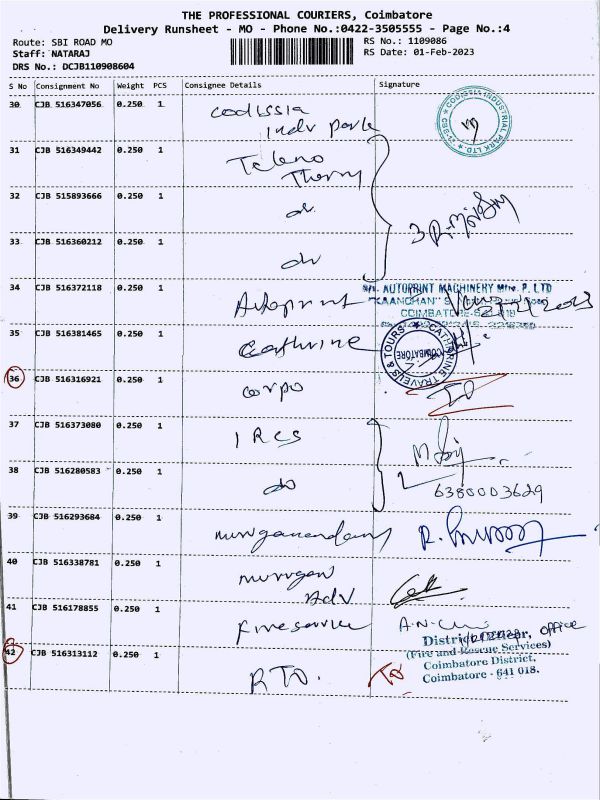 THE PROFESSIONAL COURIERS, Coimbatore
Delivery Runsheet - MO - Phone No.:0422-3505555 - Page No.:4
Route: SBI ROAD MO
RS No.: 1109086
Staff: NATARAJ
RS Date: 01-Feb-2023
DRS No.: DCJB110908604
S No Consignment No Weight PCS Consignee Details Signature
30 CJB 516347056 0.250 1 Codissia
Indu Park
31 CJB 516349442 0.250 1 Tekno
Therm
32 CJB 515893666 0.250 1 do
33 CJB 516360212 0.250 1 do
34 CJB 516372118 0.250 1 Autoprint
AUTOPRINT MACHINERY Mfre. P. LTD
"KAANCHAN"
COIMBATORE-641 018
35 CJB 516381465 0.250 1 Cathrine
CATHARINE TRAVELS & TOURS
COIMBATORE
36 CJB 516316921 0.250 1 corpo
37 CJB 516373080 0.250 1 IRCS
38 CJB 516280583 0.250 1 do
6380003629
39 CJB 516293684 0.250 1 murganandam
40 CJB 516338781 0.250 1 murugan
Adv
41 CJB 516178855 0.250 1 fireservice
District Officer, office
(Fire and Rescue Services)
Coimbatore District,
Coimbatore - 641 018.
42 CJB 516313112 0.250 1 RTO.